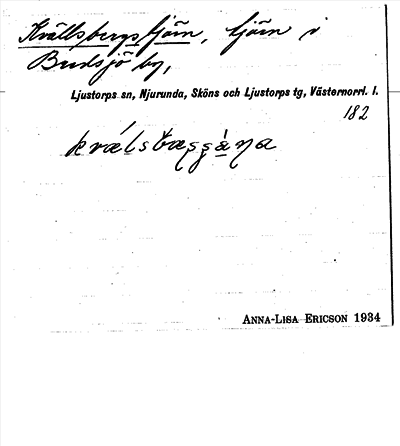 Kvällsbergstjärn, tjärn i
Bredsjö by,
Ljustorps sn, Njurunda, Sköns och Ljustorps tg, Västernorrl. l.
182
ANNA-LISA ERICSON 1934